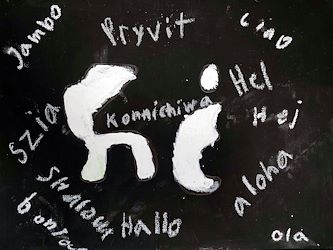 Jambo
Pryvit
Ciao
hi
Konnichiwa
Hej
Szia
Shalom
Hallo
aloha
ola